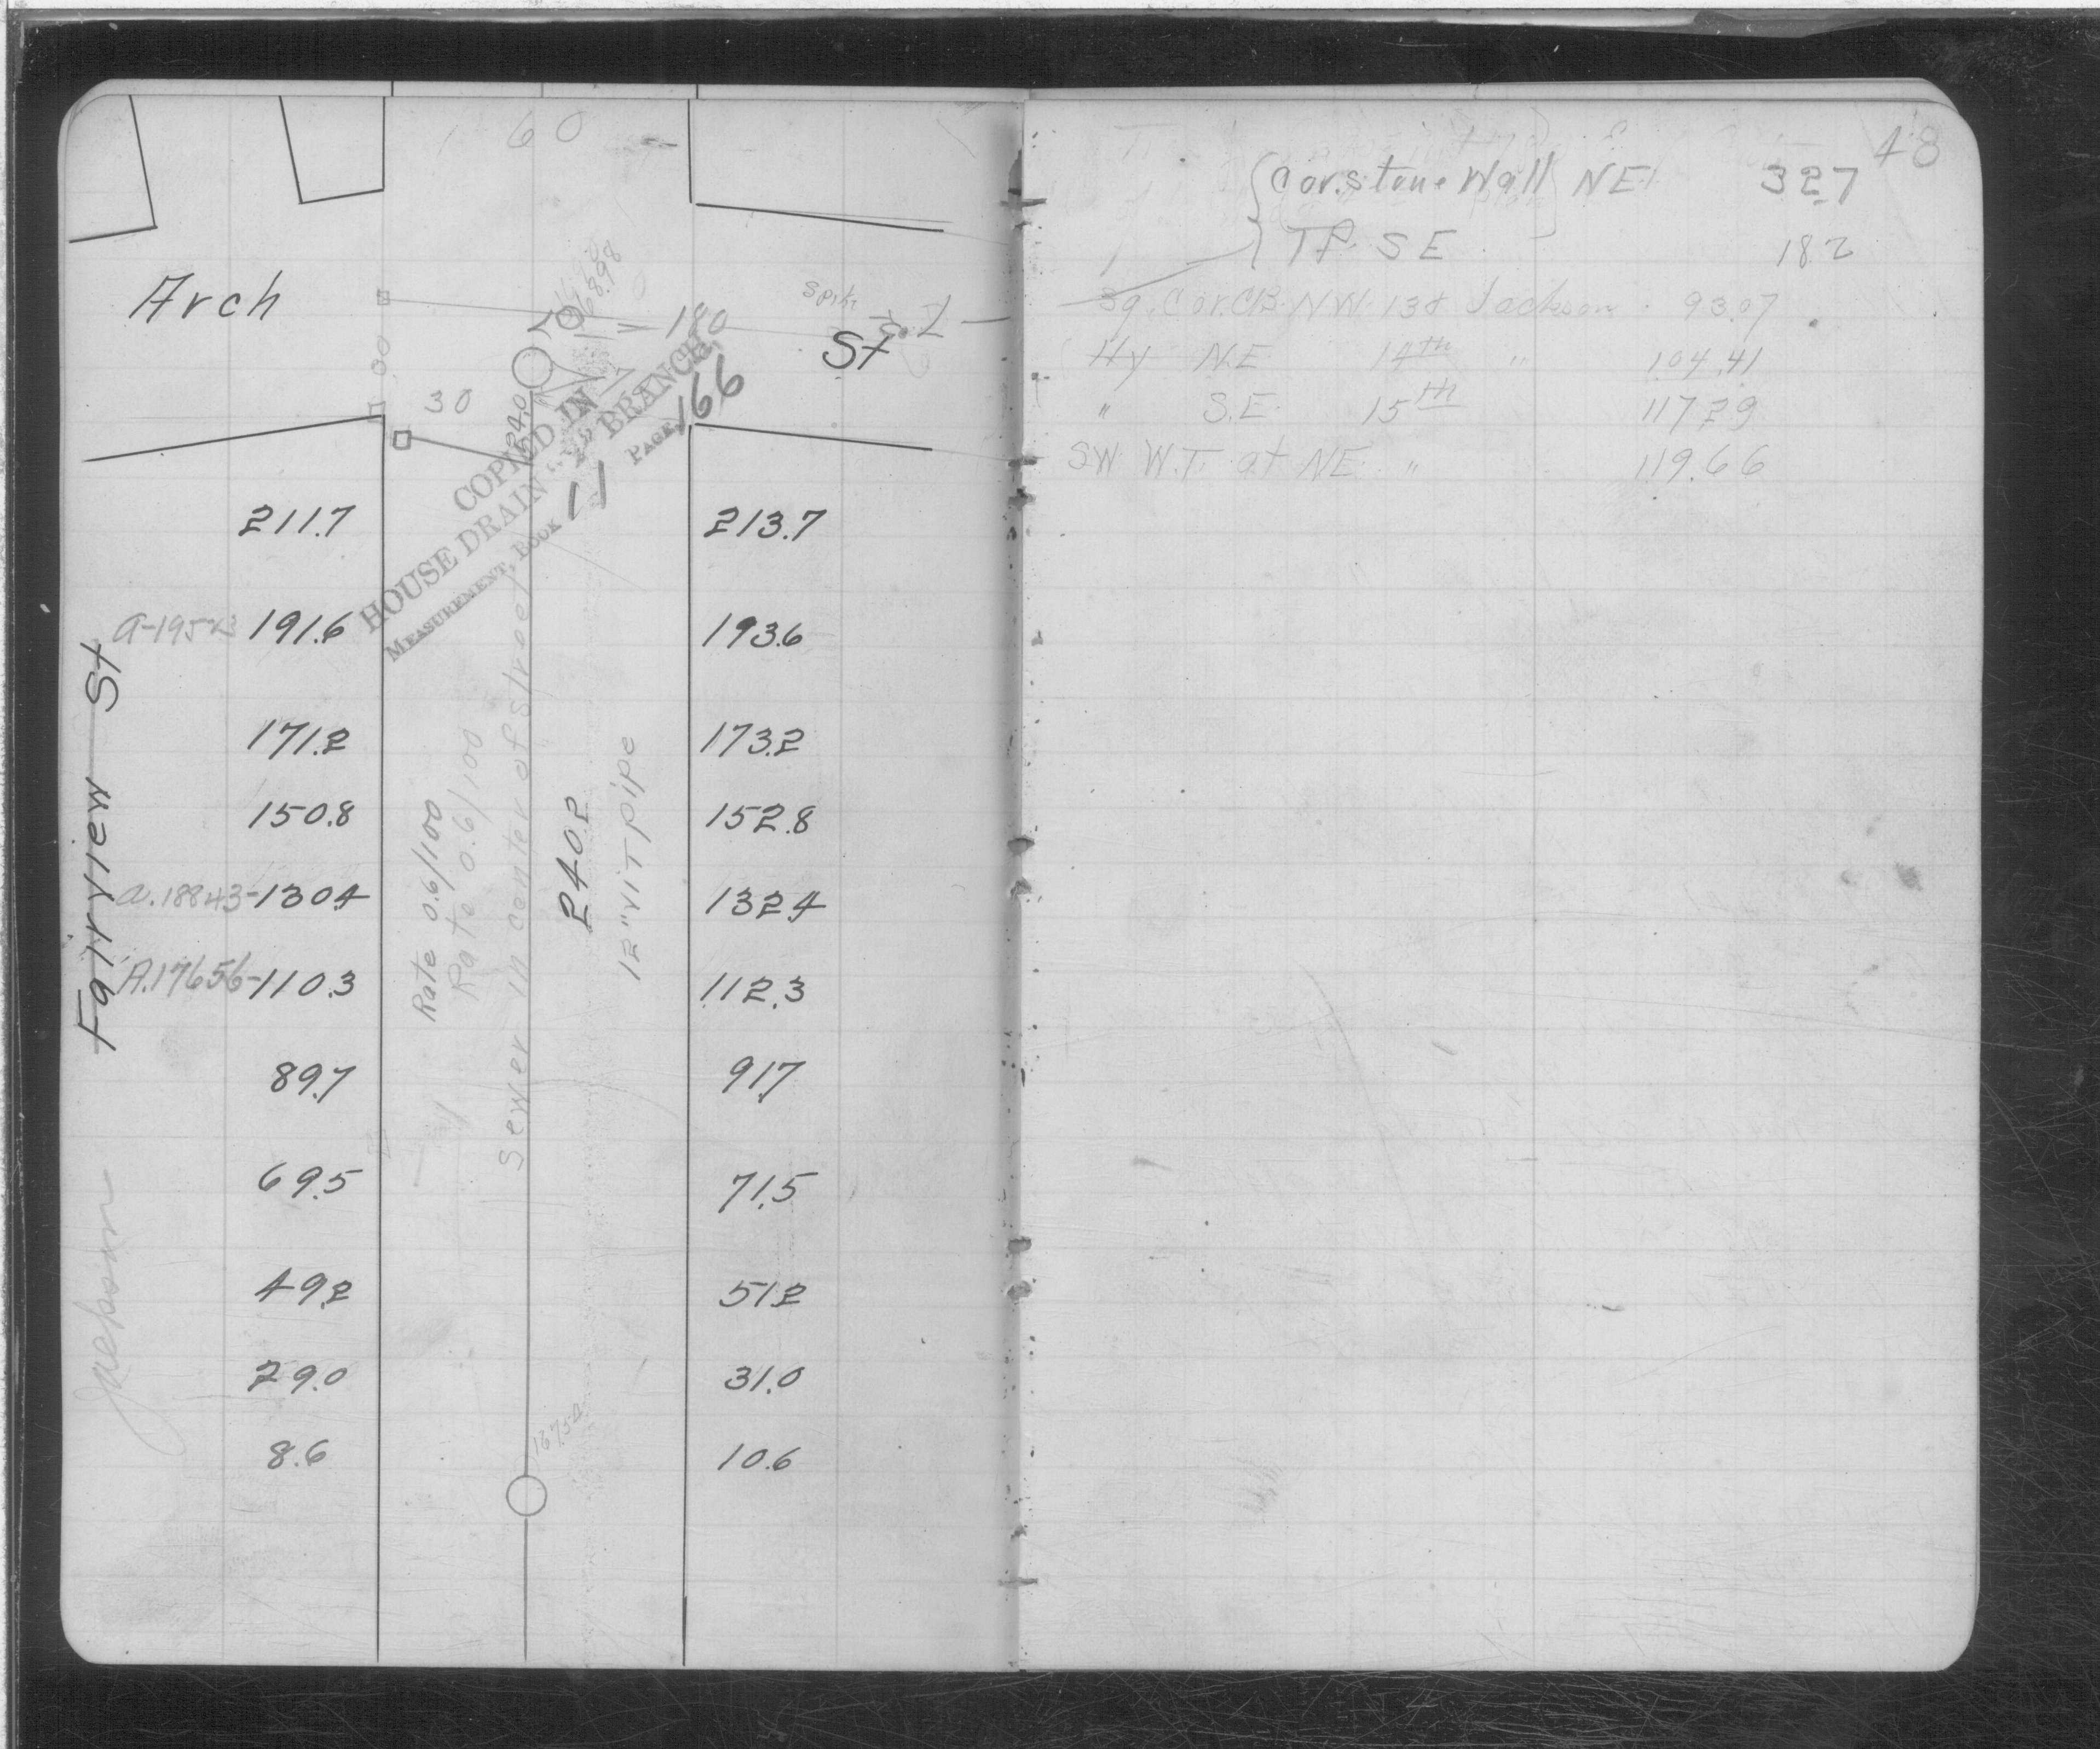 60
Arch
St
180
Spike
30
30
24.0
COPIED IN
HOUSE DRAIN BRANCH,
MEASUREMENT, BOOK 11 PAGE, 166
Fairview St
Jackson
211.7 213.7
191.6 193.6
171.2 173.2
150.8 152.8
a.18843-130.4 132.4
A.17656-110.3 112.3
89.7 91.7
69.5 71.5
49.2 51.2
29.0 31.0
8.6 10.6
Rate 0.6/100
Rate 0.6/100
Sewer in center of street
240.2
12" VIT pipe
48
Cor. stone Wall NE 32.7
T.P. S E 18.2
Sq. Cor. CB. NW. 13 & Jackson 93.07
Hy N.E 14th " 104.41
" S.E. 15th 117.29
SW W.T. at NE " 119.66